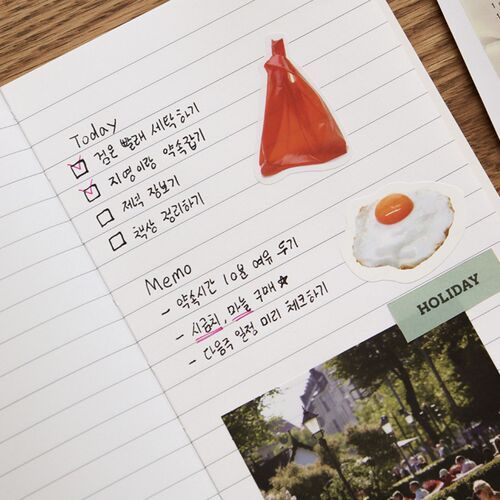 Today
검은 빨래 세탁하기
지영이랑 약속잡기
저녁 장보기
책상 정리하기
Memo
- 약속시간 10분 여유 두기
- 시금치, 마늘 구매 ★
- 다음주 일정 미리 체크하기
HOLIDAY